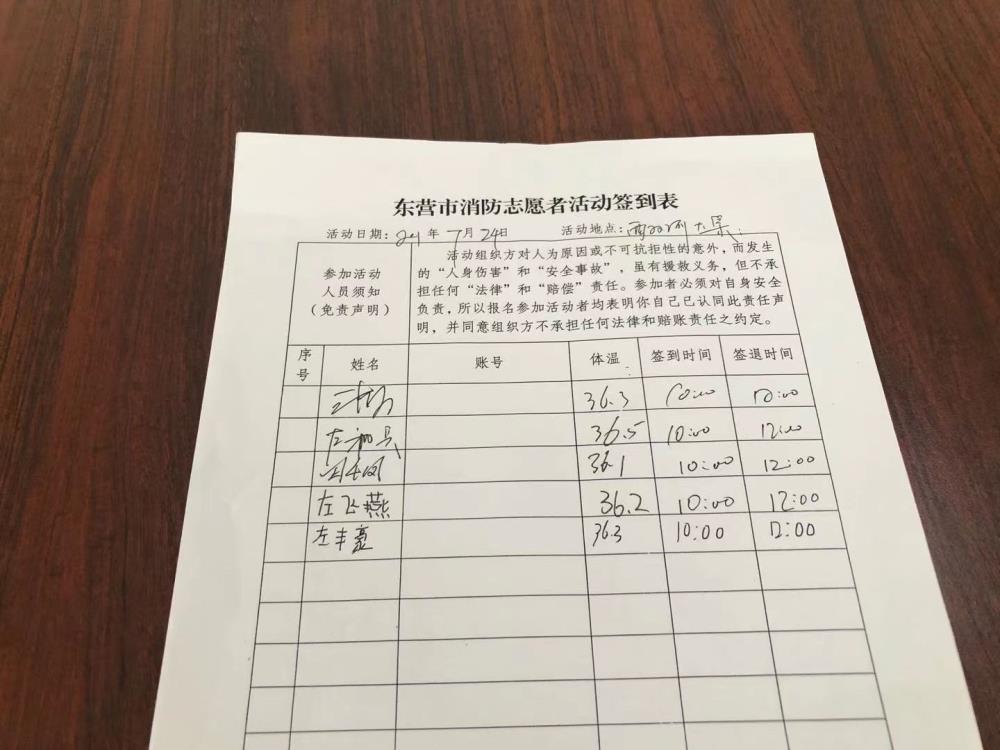 东营市消防志愿者活动签到表
活动日期: 2021 年 7 月 24 日 活动地点:
参加活动
人员须知
(免责声明)
活动组织方对人为原因或不可抗拒性的意外,而发生
的“人身伤害”和“安全事故”,虽有援救义务,但不承
担任何“法律”和“赔偿”责任。参加者必须对自身安全
负责,所以报名参加活动者均表明你自己已认同此责任声
明,并同意组织方不承担任何法律和赔账责任之约定。
序号 姓名 账号 体温 签到时间 签退时间
36.3 10:00 12:00
36.5 10:00 12:00
36.1 10:00 12:00
左飞燕 36.2 10:00 12:00
左丰豪 36.3 10:00 12:00